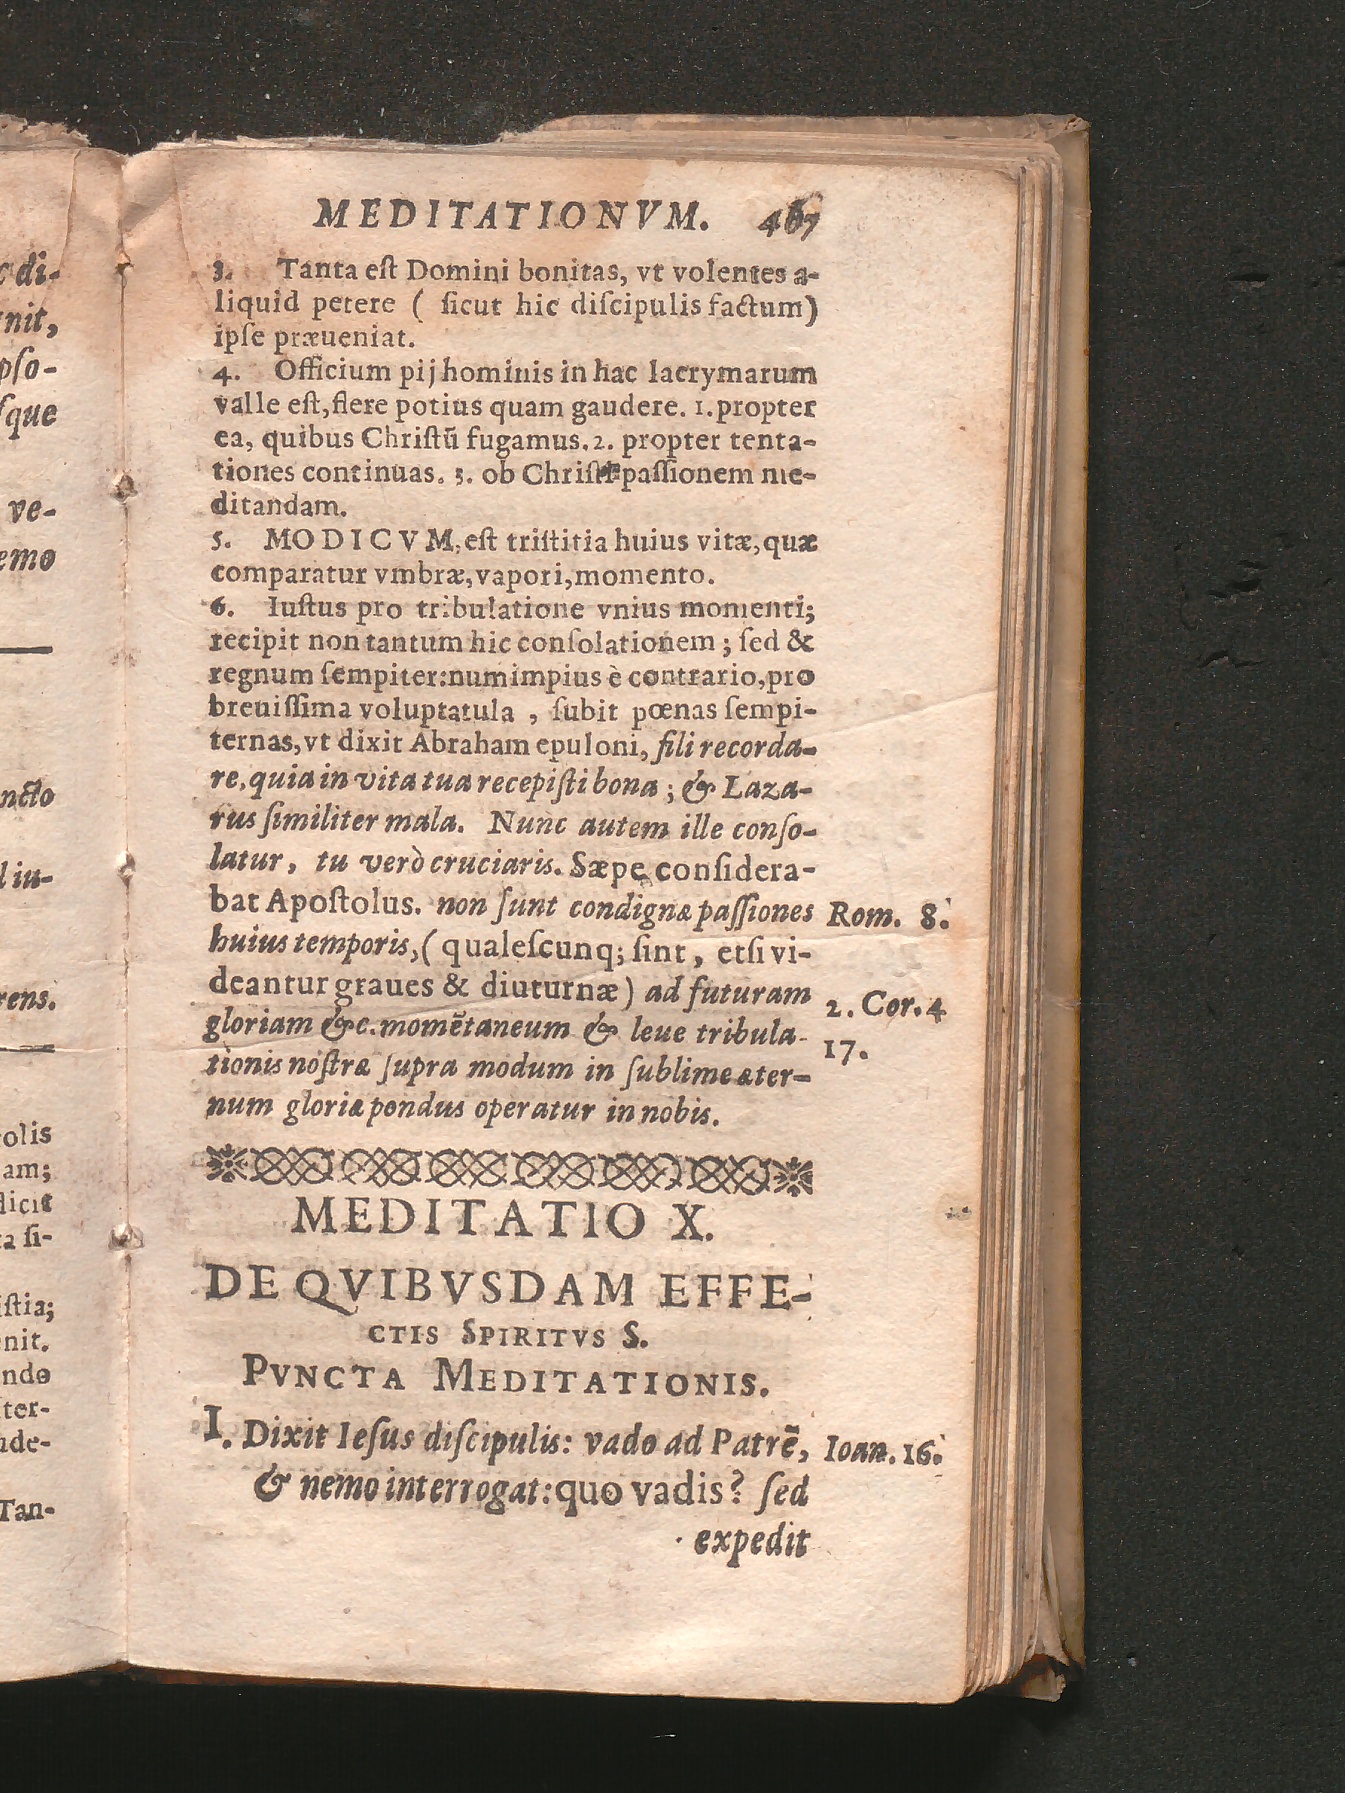 MEDITATIONVM. 467
3. Tanta eſt Domini bonitas, vt volentes a-
liquid petere ( ſicut hic diſcipulis factum)
ipſe præueniat.
4. Officium pij hominis in hac lacrymarum
valle eſt, flere potius quam gaudere. 1. propter
ea, quibus Chriſtū fugamus. 2. propter tenta-
tiones continuas. 3. ob Chriſti paſſionem me-
ditandam.
5. MODICVM, eſt triſtitia huius vitæ, quæ
comparatur vmbræ, vapori, momento.
6. Iuſtus pro tribulatione vnius momenti;
recipit non tantum hic conſolationem ; ſed &
regnum ſempiter:num impius è contrario, pro
breuiſſima voluptatula , ſubit pœnas ſempi-
ternas, vt dixit Abraham epuloni, fili recorda-
re, quia in vita tua recepiſti bona ; & Laza-
rus ſimiliter mala. Nunc autem ille conſo-
latur, tu verò cruciaris. Sæpe conſidera-
bat Apoſtolus. non ſunt condignæ paſſiones
Rom. 8.
huius temporis, ( qualeſcunq; ſint , etſi vi-
deantur graues & diuturnæ ) ad futuram
2. Cor. 4
gloriam &c. momētaneum & leue tribula-
17.
tionis noſtræ ſupra modum in ſublime æter-
num gloriæ pondus operatur in nobis.
MEDITATIO X.
DE QVIBVSDAM EFFE-
CTIS SPIRITVS S.
PVNCTA MEDITATIONIS.
I. Dixit Ieſus diſcipulis: vado ad Patrē,
Ioan. 16.
& nemo interrogat: quo vadis? ſed
expedit